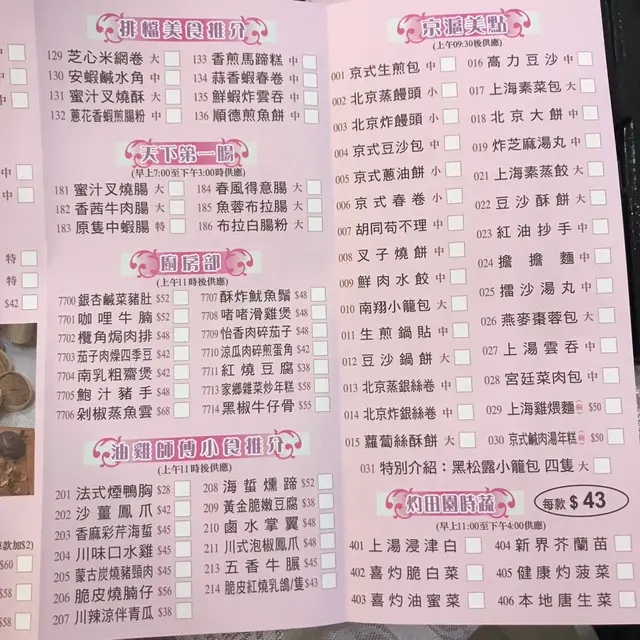 中
中
中
中
中
中
特
特
$42
款加$2)
$60
$58
$58
排檔美食推介
129 芝心米網卷 大
130 安蝦鹹水角 中
131 蜜汁叉燒酥 大
132 蔥花香蝦煎腸粉 中
133 香煎馬蹄糕 中
134 蒜香蝦春卷 中
135 鮮蝦炸雲吞 中
136 順德煎魚餅 中
天下第一腸
(早上7:00至下午3:00時供應)
181 蜜汁叉燒腸 大
182 香茜牛肉腸 大
183 原隻中蝦腸 特
184 春風得意腸 大
185 魚蓉布拉腸 大
186 布拉白腸粉 大
廚房部
(上午11時後供應)
7700 銀杏鹹菜豬肚 $52
7701 咖喱牛腩 $52
7702 欖角焗肉排 $48
7703 茄子肉燥四季豆 $42
7704 南乳粗齋煲 $42
7705 鮑汁豬手 $48
7706 剁椒蒸魚雲 $68
7707 酥炸魷魚鬚 $48
7708 啫啫滑雞煲 $48
7709 怡香肉碎茄子 $48
7710 涼瓜肉碎煎蛋角 $42
7711 紅燒豆腐 $38
7713 家鄉雜菜炒年糕 $58
7714 黑椒牛仔骨 $55
油雞師傅小食推介
(上午11時後供應)
201 法式煙鴨胸 $28
202 沙薑鳳爪 $42
203 香麻彩芹海蜇 $45
204 川味口水雞 $45
205 蒙古炭燒豬頸肉 $45
206 脆皮燒腩仔 $56
207 川辣涼伴青瓜 $38
208 海蜇燻蹄 $52
209 黃金脆嫩豆腐 $38
210 鹵水掌翼 $48
211 川式泡椒鳳爪 $48
213 五香牛𦟌 $45
214 脆皮紅燒乳鴿/隻 $43
京滬美點
(上午09:30後供應)
001 京式生煎包 中
002 北京蒸饅頭 小
003 北京炸饅頭 小
004 京式豆沙包 中
005 京式蔥油餅 小
006 京式春卷 小
007 胡同苟不理 中
008 叉子燒餅 中
009 鮮肉水餃 中
010 南翔小籠包 大
011 生煎鍋貼 中
012 豆沙鍋餅 大
013 北京蒸銀絲卷 中
014 北京炸銀絲卷 中
015 蘿蔔絲酥餅 大
016 高力豆沙 中
017 上海素菜包 大
018 北京大餅 中
019 炸芝麻湯丸 中
021 上海素蒸餃 大
022 豆沙酥餅 大
023 紅油抄手 中
024 擔擔麵 中
025 擂沙湯丸 中
026 燕麥棗蓉包 大
027 上湯雲吞 中
028 宮廷菜肉包 中
029 上海雞煨麵 $50
030 京式鹹肉湯年糕 $50
031 特別介紹：黑松露小籠包 四隻 大
灼田園時蔬
每款 $43
(早上11:00至下午4:00供應)
401 上湯浸津白
402 喜灼脆白菜
403 喜灼油蜜菜
404 新界芥蘭苗
405 健康灼菠菜
406 本地唐生菜